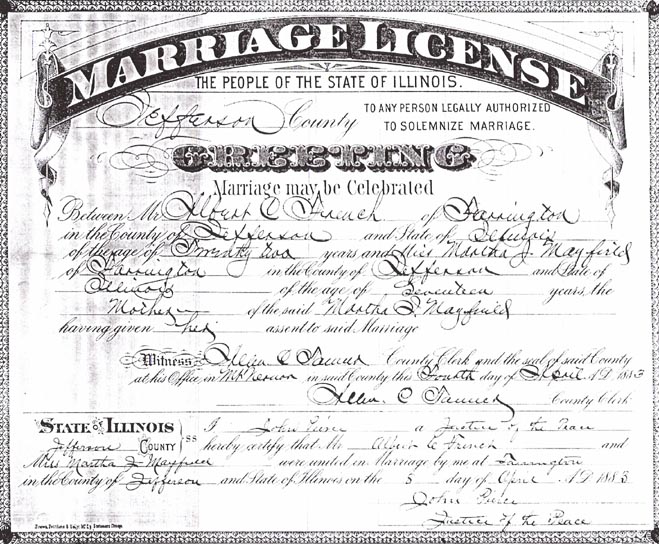 MARRIAGE LICENSE
THE PEOPLE OF THE STATE OF ILLINOIS.
Jefferson County TO ANY PERSON LEGALLY AUTHORIZED
TO SOLEMNIZE MARRIAGE.
GREETING
Marriage may be Celebrated
Between Mr Albert C French of Farrington
in the County of Jefferson and State of Illinois
of the age of Twenty two years and Miss Martha J Mayfield
of Farrington in the County of Jefferson and State of
Illinois of the age of Seventeen years, the
Mother of the said Martha J. Mayfield
having given her assent to said Marriage
Witness Allen C Tanner County Clerk and the seal of said County
at his Office, in Mt Vernon in said County this Fourth day of April A.D. 1883
Allen C Tanner County Clerk
STATE OF ILLINOIS I John a Justice of the Peace
Jefferson COUNTY SS hereby certify that Mr Albert C French and
Miss Martha J Mayfield were united in Marriage by me at Farrington
in the County of Jefferson and State of Illinois on the 5 day of April A.D. 1883
John
Justice of the Peace